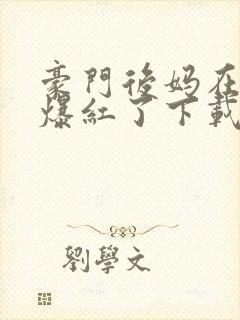 豪門後妈在
爆紅了下載
劉學文